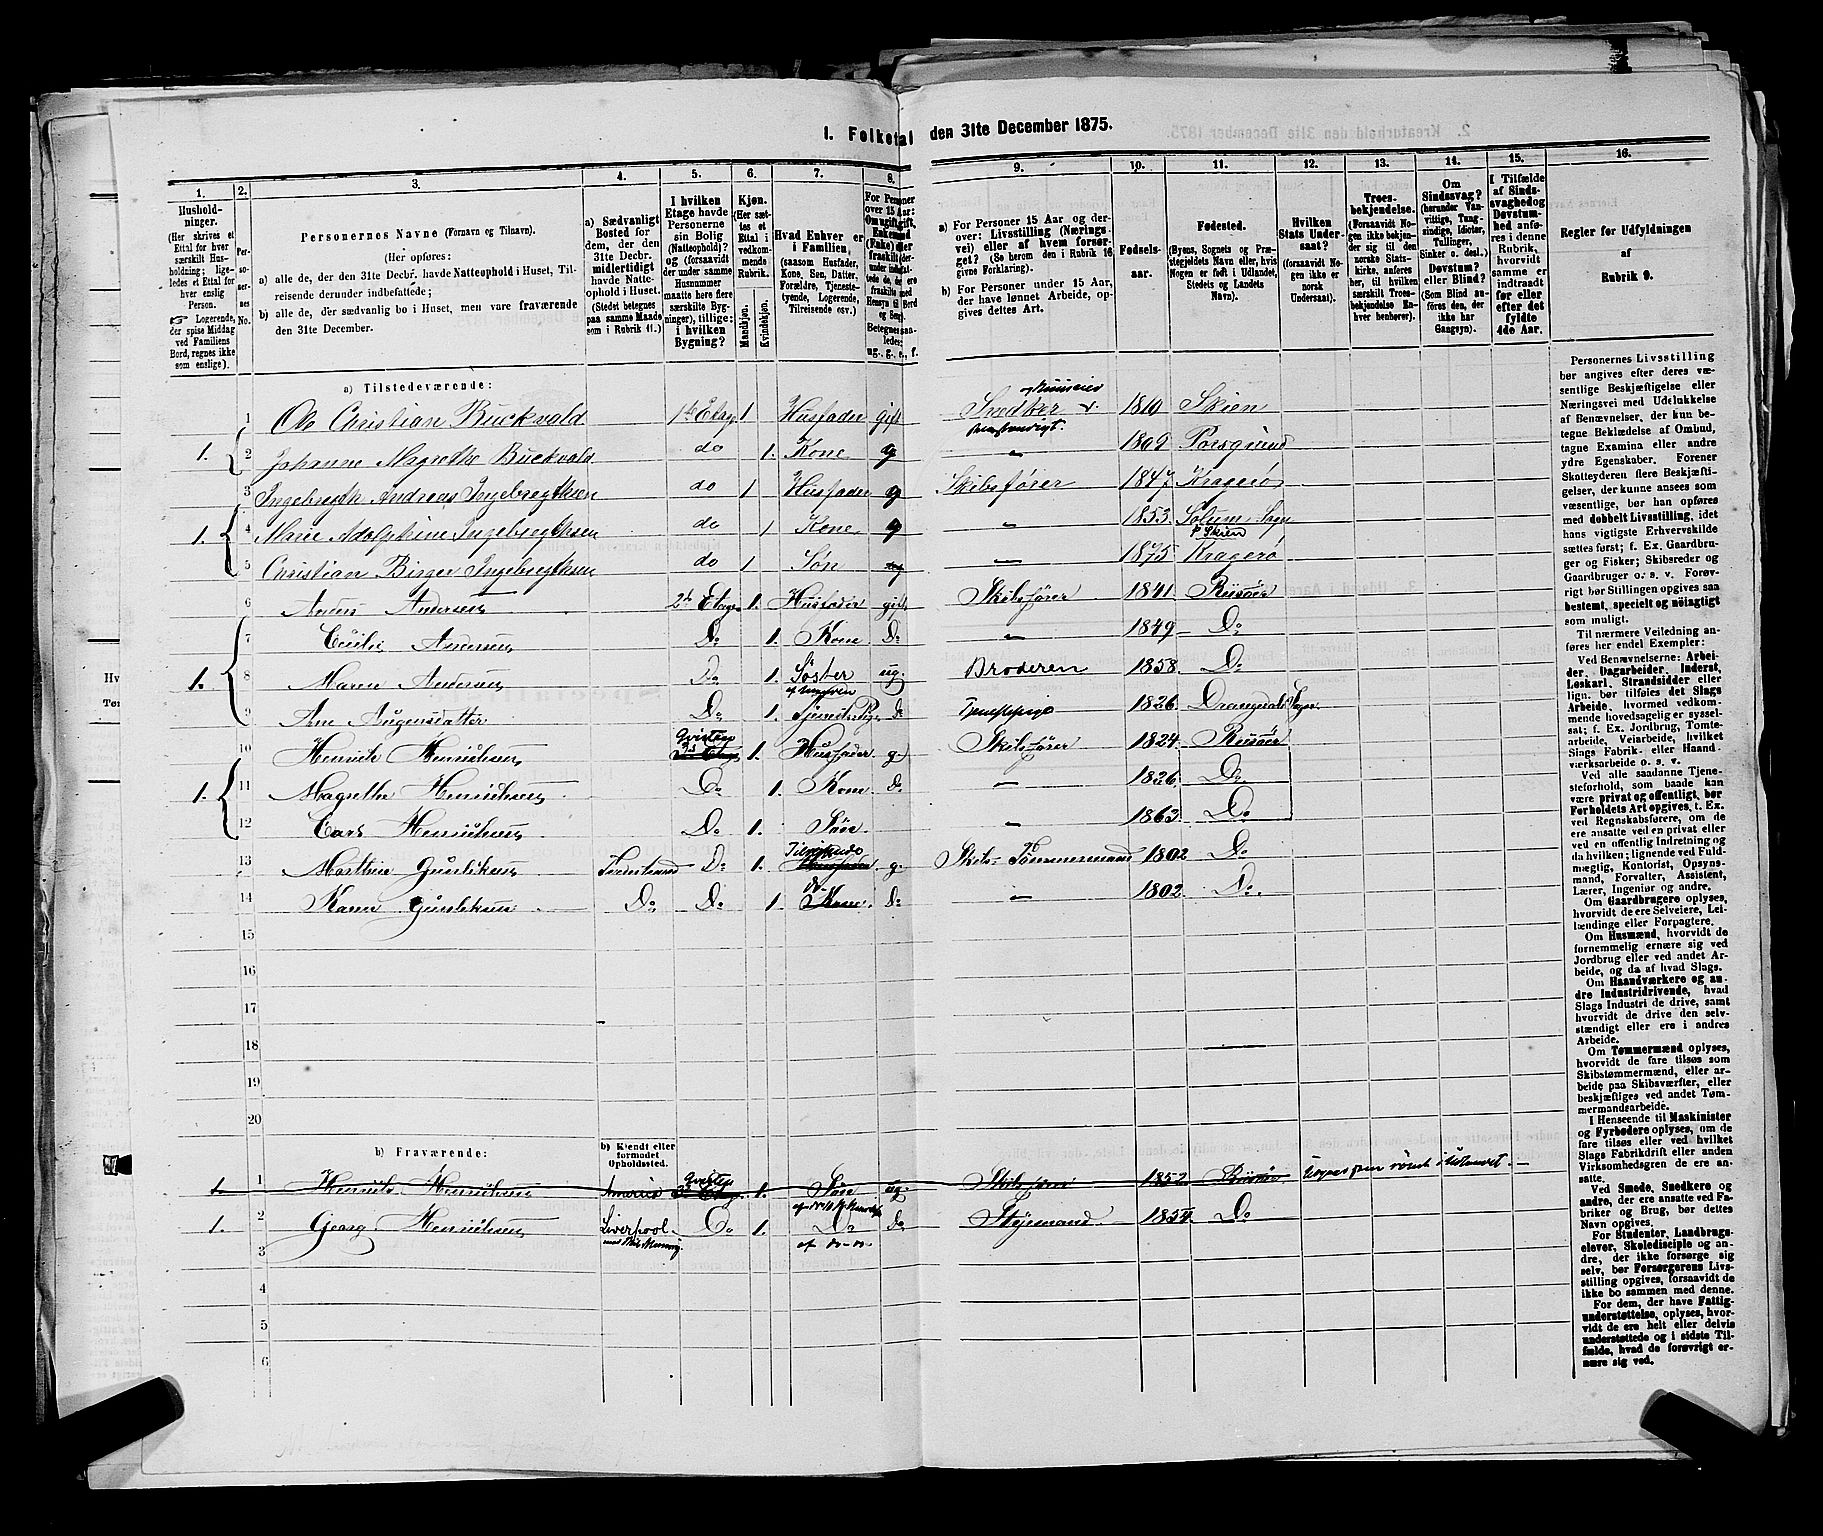 1. Folketal den 31te December 1875.
1. 2. 3. 4. 5. 6. 7. 8. 9. 10. 11. 12. 13. 14. 15. 16.
Husholdninger. (Her skrives et Ettal for hver særskilt Husholdning; ligeledes et Ettal for hver enslig Person. Logerende, der spise Middag ved Familiens Bord, regnes ikke som enslige).
Personernes No.
Personernes Navne (Fornavn og Tilnavn).
(Her opføres:
a) alle de, der den 31te Decbr. havde Natteophold i Huset, Tilreisende derunder indbefattede;
b) alle de, der sædvanlig bo i Huset, men vare fraværende den 31te December.
a) Sædvanligt Bosted for dem, der den 31te Decbr. midlertidigt havde Natteophold i Huset (Stedet betegnes paa samme Maade som i Rubrik 11.)
I hvilken Etage havde Personerne sin Bolig (Natteophold)? og (forsaavidt der under samme Husnummer maatte høre flere særskilte Bygninger), tillige: i hvilken Bygning?
Kjøn. (Her sættes et Ettal i vedkommende Rubrik.)
Mandkjøn. Kvindekjøn.
Hvad Enhver er i Familien, (saasom Husfader, Kone, Søn, Datter, Forældre, Tjenestetyende, Logerende, Tilreisende osv.)
a) For Personer 15 Aar og derover: Livsstilling (Næringsvei) eller af hvem forsørget? (Se herom den i Rubrik 16 givne Forklaring).
b) For Personer under 15 Aar, der have lønnet Arbeide, opgives dettes Art.
Fødselsaar.
Fødested. (Byens, Sognets og Præstegjeldets Navn eller, hvis Nogen er født i Udlandet, Stedets og Landets Navn).
Hvilken Stats Undersaat? (forsaavidt Nogen ikke er norsk Undersaat).
Troesbekjendelse. (Forsaavidt Nogen ikke bekjender sig til den norske Statskirke, anføres her, til hvilken særskilt Troesbekjendelse Enhver henhører).
Om Sindssvag? (herunder Vanvittige, Tungsindige, Idioter, Tullinger, Sinker o. desl.) Døvstum? eller Blind? (Som Blind anføres den, der ikke har Gangsyn).
I Tilfælde af Sindssvaghed og Døvstumhed anføres i denne Rubrik, hvorvidt samme er indtraadt før eller efter det fyldte 4de Aar.
Regler for Udfyldningen af Rubrik 9.
a) Tilstedeværende:
1 Ole Christian Buckvald 1ste Etage 1 Husfader gift Snedker 1810 Skien
1. 2 Johanne Magrethe Buckvald do 1. Kone g 1809 Porsgrund
3 Ingebregth Andreas Ingebregthsen do 1 Husfader g Skibsfører 1847 Kragerø
1. 4 Marie Adolphine Ingebregthsen do 1 Kone g " 1853 Solum Sogn p Skien
5 Christian Birger Ingebregthsen do 1 Søn " 1875 Kragerø
6 Anders Andersen 2den Etage 1. Husfader gift Skibsfører 1841 Risøer
7 Cecilie Andersen Do 1. Kone Do " 1849 Do
1. 8 Maren Andersen Do 1. Søster ug. Broderen 1858. Do
9 Ane Augensdatter Do 1 Tjenestepige do Tjenestepige 1826 Drangedal Sogn
10 Henrich Henrichsen Qvistep 1. Husfader g Skibsfører 1824. Risøer
1. 11 Magrethe Henrichsen Do 1. Kone do " 1826 Do
12 Carl Henrichsen Do 1. Søn " 1863 Do
13 Mathias Gundersen Do 1. Tilreisende g Skibs-Tømmermand 1802 Do
14 Karen Do Do 1. do do " 1802 Do
15
16
17
18
19
20
b) Fraværende:
b) Kjendt eller formodet Opholdssted.
1. 1 Henrich Henrichsen America Qvistep 1. Søn ug Skibsfører 1852 Risøer
1. 2 Georg Henrichsen Liverpool Do 1. Do do Styrmand 1854 Do
3
4
5
6
Personernes Livsstilling bør angives efter deres væsentlige Beskjæftigelse eller Næringsvei med Udelukkelse af Benævnelser, der kun betegne Beklædelse af Ombud, tagne Examina eller andre ydre Egenskaber. Forener Skatteyderen flere Beskjæftigelser, der kunne ansees som væsentlige, bør han opføres med dobbelt Livsstilling, idet hans vigtigste Erhvervskilde sættes først; f. Ex. Gaardbruger og Fisker; Skibsreder og Gaardbruger o. s. v. Forøvrigt bør Stillingen opgives saa bestemt, specielt og nøiagtigt som muligt.
Til nærmere Veiledning anføres her endel Exempler:
Ved Benævnelserne: Arbeider, Dagarbeider, Inderst, Løskarl, Strandsidder eller lign. bør tilføies det Slags Arbeide, hvormed vedkommende hovedsagelig er sysselsat; f. Ex. Jordbrug, Tomtearbeide, Veiarbeide, hvilket Slags Fabrik- eller Haandværksarbeide o. s. v.
Ved alle saadanne Tjenesteforhold, som baade kan være privat og offentligt, bør Forholdets Art opgives, t. Ex. ved Regnskabsførere, om de ere ansatte ved en privat eller ved en offentlig Indretning og da hvilken; lignende ved Fuldmægtig, Kontorist, Opsynsmand, Forvalter, Assistent, Lærer, Ingeniør og andre.
Om Gaardbrugere oplyses, hvorvidt de ere Selveiere, Leilændinge eller Forpagtere.
Om Husmænd, hvorvidt de fornemmelig ernære sig ved Jordbrug eller ved andet Arbeide, og da af hvad Slags.
Om Haandværkere og andre Industridrivende, hvad Slags Industri de drive, samt hvorvidt de drive den selvstændigt eller ere i andres Arbeide.
Om Tømmermænd oplyses, hvorvidt de fare tilsøs som Skibstømmermænd, eller arbeide paa Skibsværfter, eller beskjæftiges ved andet Tømmermandsarbeide.
I Henseende til Maskinister og Fyrbødere oplyses, om de fare tilsøs eller ved hvilket Slags Fabrikdrift eller anden Virksomhedsgren de ere ansatte.
Ved Smede, Snedkere og andre, der ere ansatte ved Fabriker og Brug, bør dettes Navn opgives.
For Studenter, Landbrugselever, Skoledisciple og andre, der ikke forsørge sig selv, bør Forsørgerens Livsstilling opgives, forsaavidt de ikke bo sammen med denne.
For dem, der have Fattigunderstøttelse, oplyses, hvorvidt de ere helt eller delvis understøttede og i sidste Tilfælde, hvad de forøvrigt ernære sig ved.